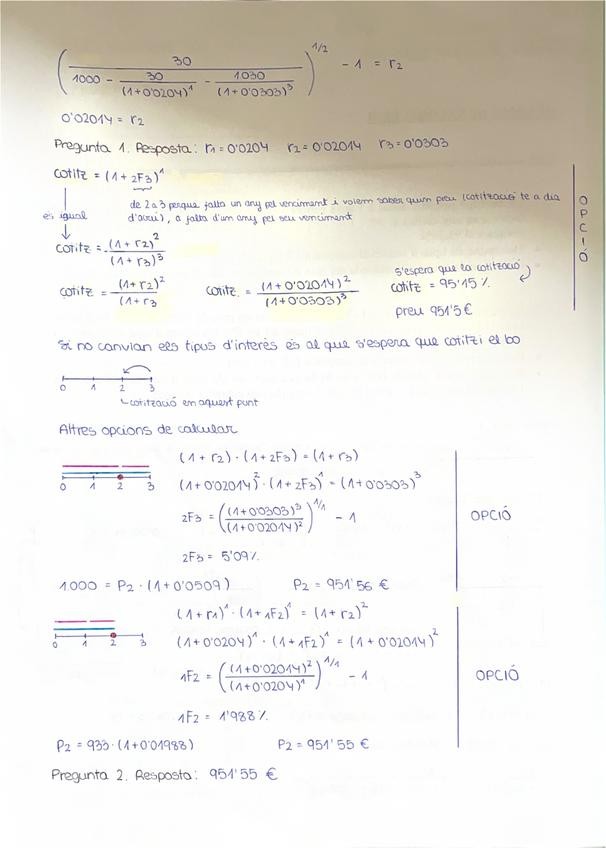 ( 30 / (1000 - 30/(1+0'0204)¹ - 1030/(1+0'0303)³) )^1/2 - 1 = r2
0'02014 = r2
Pregunta 1. Resposta: r1 = 0'0204 r2 = 0'02014 r3 = 0'0303
cotitz = (1 + 2F3)¹
de 2 a 3 perque falta un any pel venciment i volem saber quin preu (cotització te a dia
d'avui), a falta d'un any pel seu venciment
és igual
cotitz = (1 + r2)² / (1 + r3)³
cotitz = (1 + r2)² / (1 + r3 cotitz. = (1 + 0'02014)² / (1 + 0'0303)³
s'espera que la cotització
cotitz = 95'15 %
preu 951'5 €
OPCIÓ
Si no canvian els tipus d'interés és al que s'espera que cotitzi el bo
0 1 2 3
cotització en aquest punt
Altres opcions de calcular
0 1 2 3
(1 + r2) · (1 + 2F3) = (1 + r3)
(1 + 0'02014)² · (1 + 2F3)¹ = (1 + 0'0303)³
2F3 = ( (1 + 0'0303)³ / (1 + 0'02014)² )^1/1 - 1
2F3 = 5'09 %
OPCIÓ
1.000 = P2 · (1 + 0'0509) P2 = 951'56 €
0 1 2 3
(1 + r1)¹ · (1 + 1F2)¹ = (1 + r2)²
(1 + 0'0204)¹ · (1 + 1F2)¹ = (1 + 0'02014)²
1F2 = ( (1 + 0'02014)² / (1 + 0'0204)¹ )^1/1 - 1
1F2 = 1'988 %
OPCIÓ
P2 = 933 · (1 + 0'01988) P2 = 951'55 €
Pregunta 2. Resposta: 951'55 €